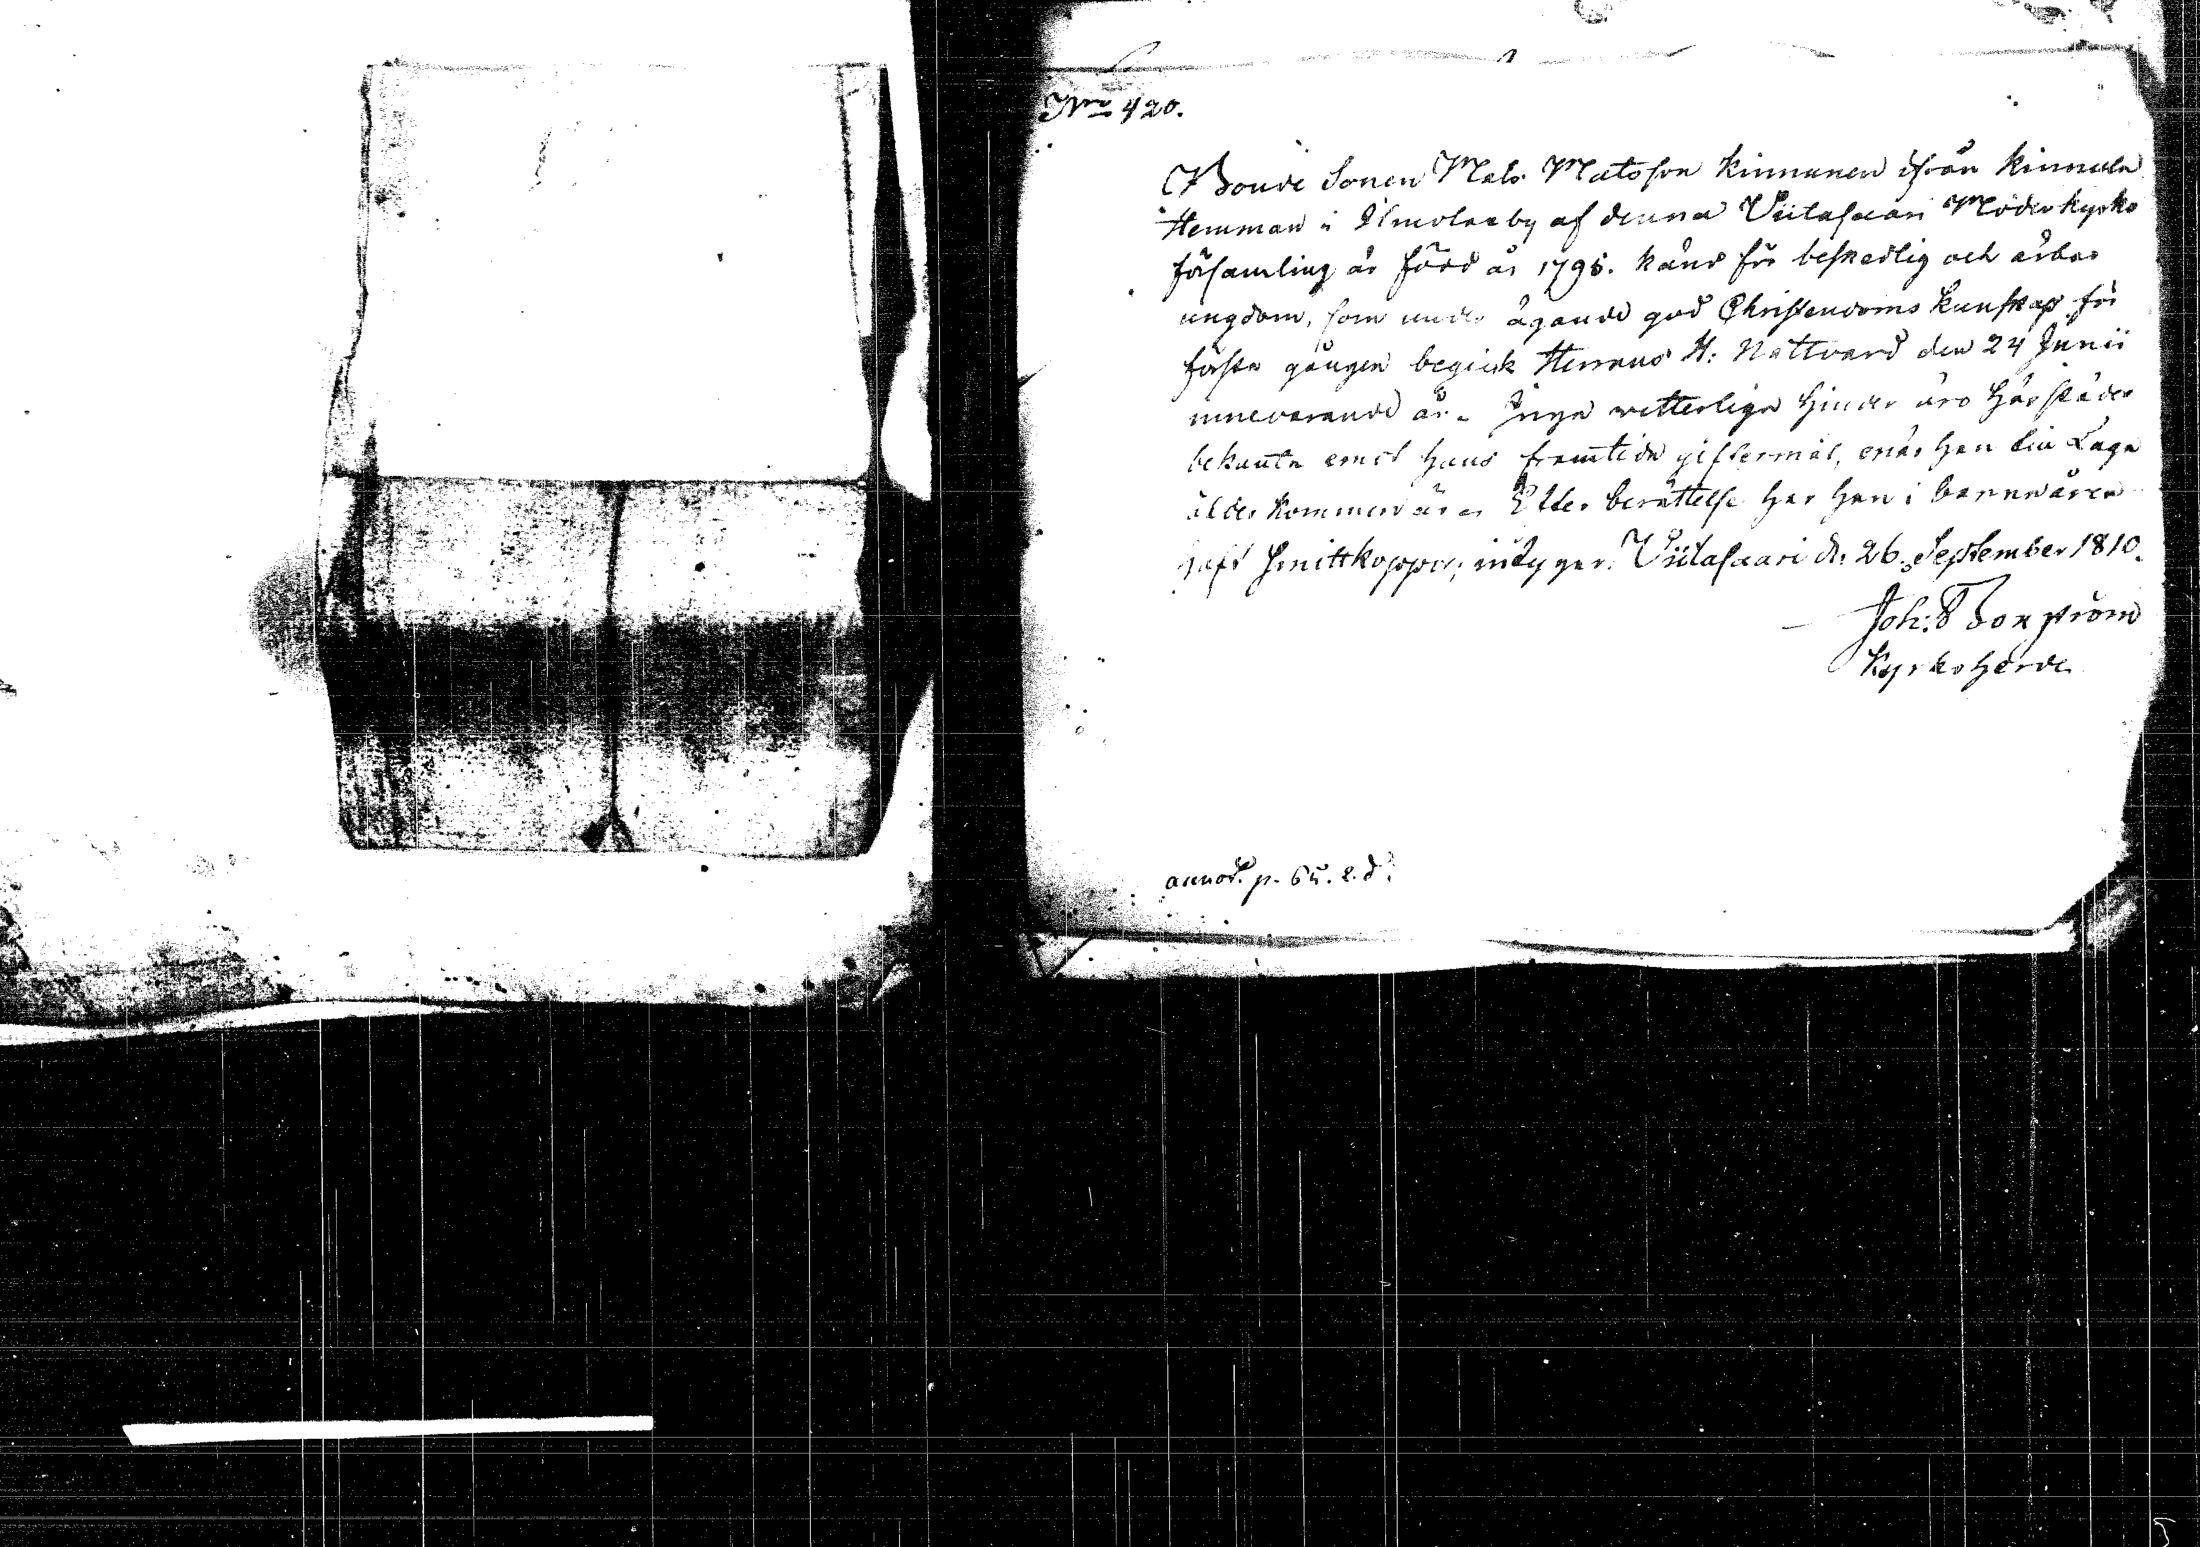 No 420.
Bonde Sonen Mats Matsson Kinnunen ifrån Kinnula
Hemman i Ilmolax by af denna Viitasaari Moderkyrko
församling är född år 1795. känd för beskedlig och ärbar
ungdom, som under ägande god Christendoms kunskap för
första gången begick Herrans H: Nattvard den 24 Junii
innevarande år. Inga vetterliga hinder äro här städes
bekanta emot hans framtida giftermål, enär han till Laga
ålder kommen är. Efter berättelse har han i barnaåren
haft Smittkoppor; intygar. Viitasaari d. 26. September 1810.
Joh: Toxström
Kyrkoherde
annot. p. 65. e. d.